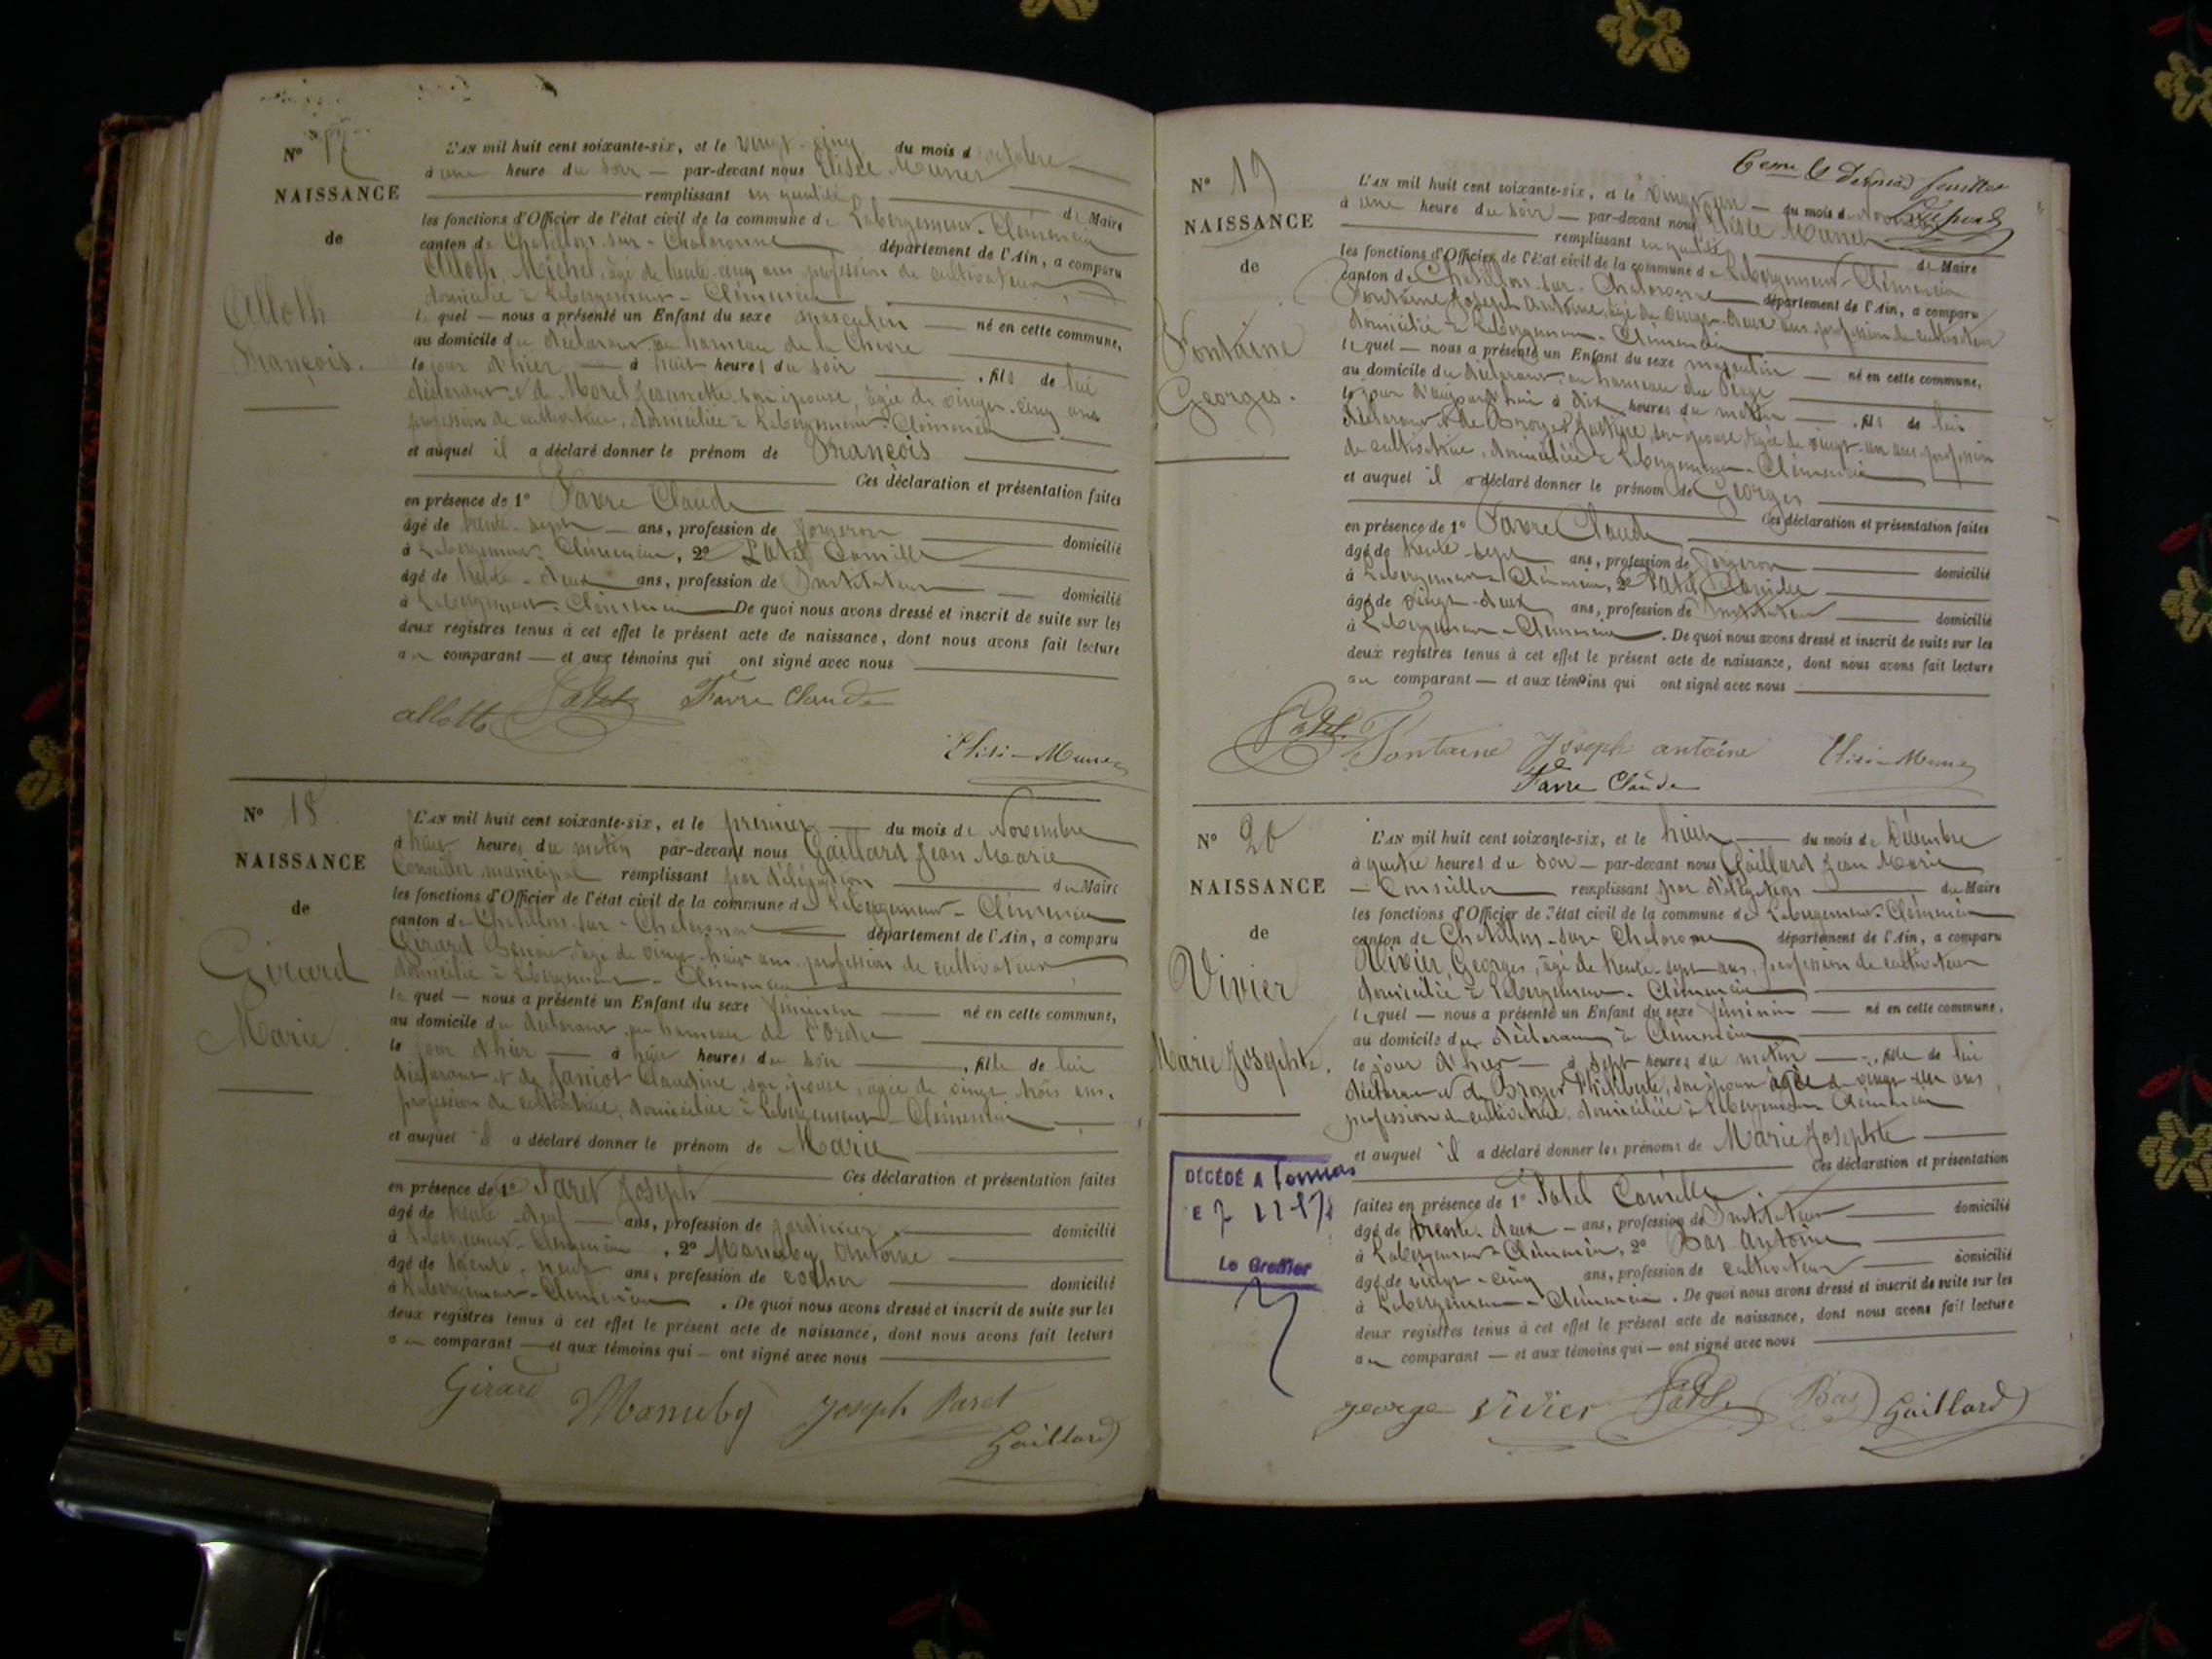 N° 17
NAISSANCE
de
Alloth
François.
L'AN mil huit cent soixante-six, et le vingt-cinq du mois d'octobre
à une heure du soir — par-devant nous Elisée Munier
remplissant en qualité de Maire
les fonctions d'Officier de l'état civil de la commune de Labergement-Clémencia
canton de Chatillon-sur-Chalaronne département de l'Ain, a comparu
Alloth, Michel, âgé de trente-cinq ans profession de cultivateur
domicilié à Labergement-Clémencia
lequel — nous a présenté un Enfant du sexe masculin — né en cette commune,
au domicile du déclarant, au hameau de la Chèvre
le jour d'hier — à huit heures du soir, fils de lui
déclarant et de Morel Jeannette son épouse, âgée de vingt-cinq ans
profession de cultivatrice, domiciliée à Labergement-Clémencia
et auquel il a déclaré donner le prénom de François
Ces déclaration et présentation faites
en présence de 1° Favre Claude
âgé de trente-sept — ans, profession de forgeron domicilié
à Labergement-Clémencia, 2° Patel Camille
âgé de trente-deux ans, profession de Instituteur domicilié
à Labergement-Clémencia De quoi nous avons dressé et inscrit de suite sur les
deux registres tenus à cet effet le présent acte de naissance, dont nous avons fait lecture
au comparant — et aux témoins qui ont signé avec nous
allott Patel Favre Claude
N° 18
NAISSANCE
de
Girard
Marie.
L'AN mil huit cent soixante-six, et le premier — du mois de Novembre
à huit heures du matin par-devant nous Gaillard Jean Marie
Conseiller municipal remplissant par délégation du Maire
les fonctions d'Officier de l'état civil de la commune de Labergement-Clémencia
canton de Chatillon-sur-Chalaronne département de l'Ain, a comparu
Girard âgé de vingt-huit ans, profession de cultivateur
domicilié à Labergement-Clémencia
lequel — nous a présenté un Enfant du sexe féminin — né en cette commune,
au domicile du déclarant, au hameau de
le jour d'hier — à huit heures du soir, fille de lui
déclarant et de Janiot Claudine, son épouse, âgée de vingt trois ans,
profession de cultivatrice, domiciliée à Labergement-Clémencia
et auquel il a déclaré donner le prénom de Marie
Ces déclaration et présentation faites
en présence de 1° Paret Joseph
âgé de trente-neuf — ans, profession de jardinier domicilié
à Labergement-Clémencia, 2° Antoine
âgé de ans, profession de cocher domicilié
à Labergement-Clémencia. De quoi nous avons dressé et inscrit de suite sur les
deux registres tenus à cet effet le présent acte de naissance, dont nous avons fait lecture
au comparant — et aux témoins qui — ont signé avec nous
Girard Joseph Paret
Gaillard
feuillet
N° 19
NAISSANCE
de
Fontaine
Georges.
L'AN mil huit cent soixante-six, et le vingt-un — du mois de
à une heure du soir — par-devant nous Elisée Munier
remplissant en qualité de Maire
les fonctions d'Officier de l'état civil de la commune de Labergement-Clémencia
canton de Chatillon-sur-Chalaronne département de l'Ain, a comparu
Fontaine Joseph Antoine, âgé de vingt-deux ans, profession de cultivateur
domicilié à Labergement-Clémencia
lequel — nous a présenté un Enfant du sexe masculin — né en cette commune,
au domicile du déclarant, au hameau du
le jour d'aujourd'hui à dix heures du matin —, fils de lui
déclarant et de Broyer Justine, son épouse, âgée de vingt-un ans, profession
de cultivatrice, domiciliée à Labergement-Clémencia
et auquel il a déclaré donner le prénom de Georges
Ces déclaration et présentation faites
en présence de 1° Favre Claude
âgé de trente-sept ans, profession de forgeron domicilié
à Labergement-Clémencia, 2° Patel Camille
âgé de vingt-deux ans, profession de Instituteur domicilié
à Labergement-Clémencia. De quoi nous avons dressé et inscrit de suite sur les
deux registres tenus à cet effet le présent acte de naissance, dont nous avons fait lecture
au comparant — et aux témoins qui ont signé avec nous
Patel Fontaine Joseph antoine
Favre Claude
N° 20
NAISSANCE
de
Vivier
Marie Josephte.
L'AN mil huit cent soixante-six, et le huit — du mois de Décembre
à quatre heures du soir — par-devant nous Gaillard Jean Marie
— Conseiller remplissant par délégation du Maire
les fonctions d'Officier de l'état civil de la commune de Labergement-Clémencia
canton de Chatillon-sur-Chalaronne département de l'Ain, a comparu
Vivier, Georges, âgé de trente-sept ans, profession de cultivateur
domicilié à Labergement-Clémencia
lequel — nous a présenté un Enfant du sexe féminin — né en cette commune,
au domicile du déclarant à Clémencia
le jour d'hier — à sept heures du matin —, fille de lui
déclarant et de Broyer Philiberte, son épouse âgée de vingt-un ans
profession de cultivatrice domiciliée à Labergement-Clémencia
et auquel il a déclaré donner les prénoms de Marie Josephte
Ces déclaration et présentation
faites en présence de 1° Patel Camille
âgé de trente-deux — ans, profession de Instituteur domicilié
à Labergement-Clémencia, 2° Bas Antoine
âgé de vingt-cinq ans, profession de cultivateur domicilié
à Labergement-Clémencia. De quoi nous avons dressé et inscrit de suite sur les
deux registres tenus à cet effet le présent acte de naissance, dont nous avons fait lecture
au comparant — et aux témoins qui — ont signé avec nous
DÉCÉDÉ A
Le Greffier
george vivier Patel Bas Gaillard